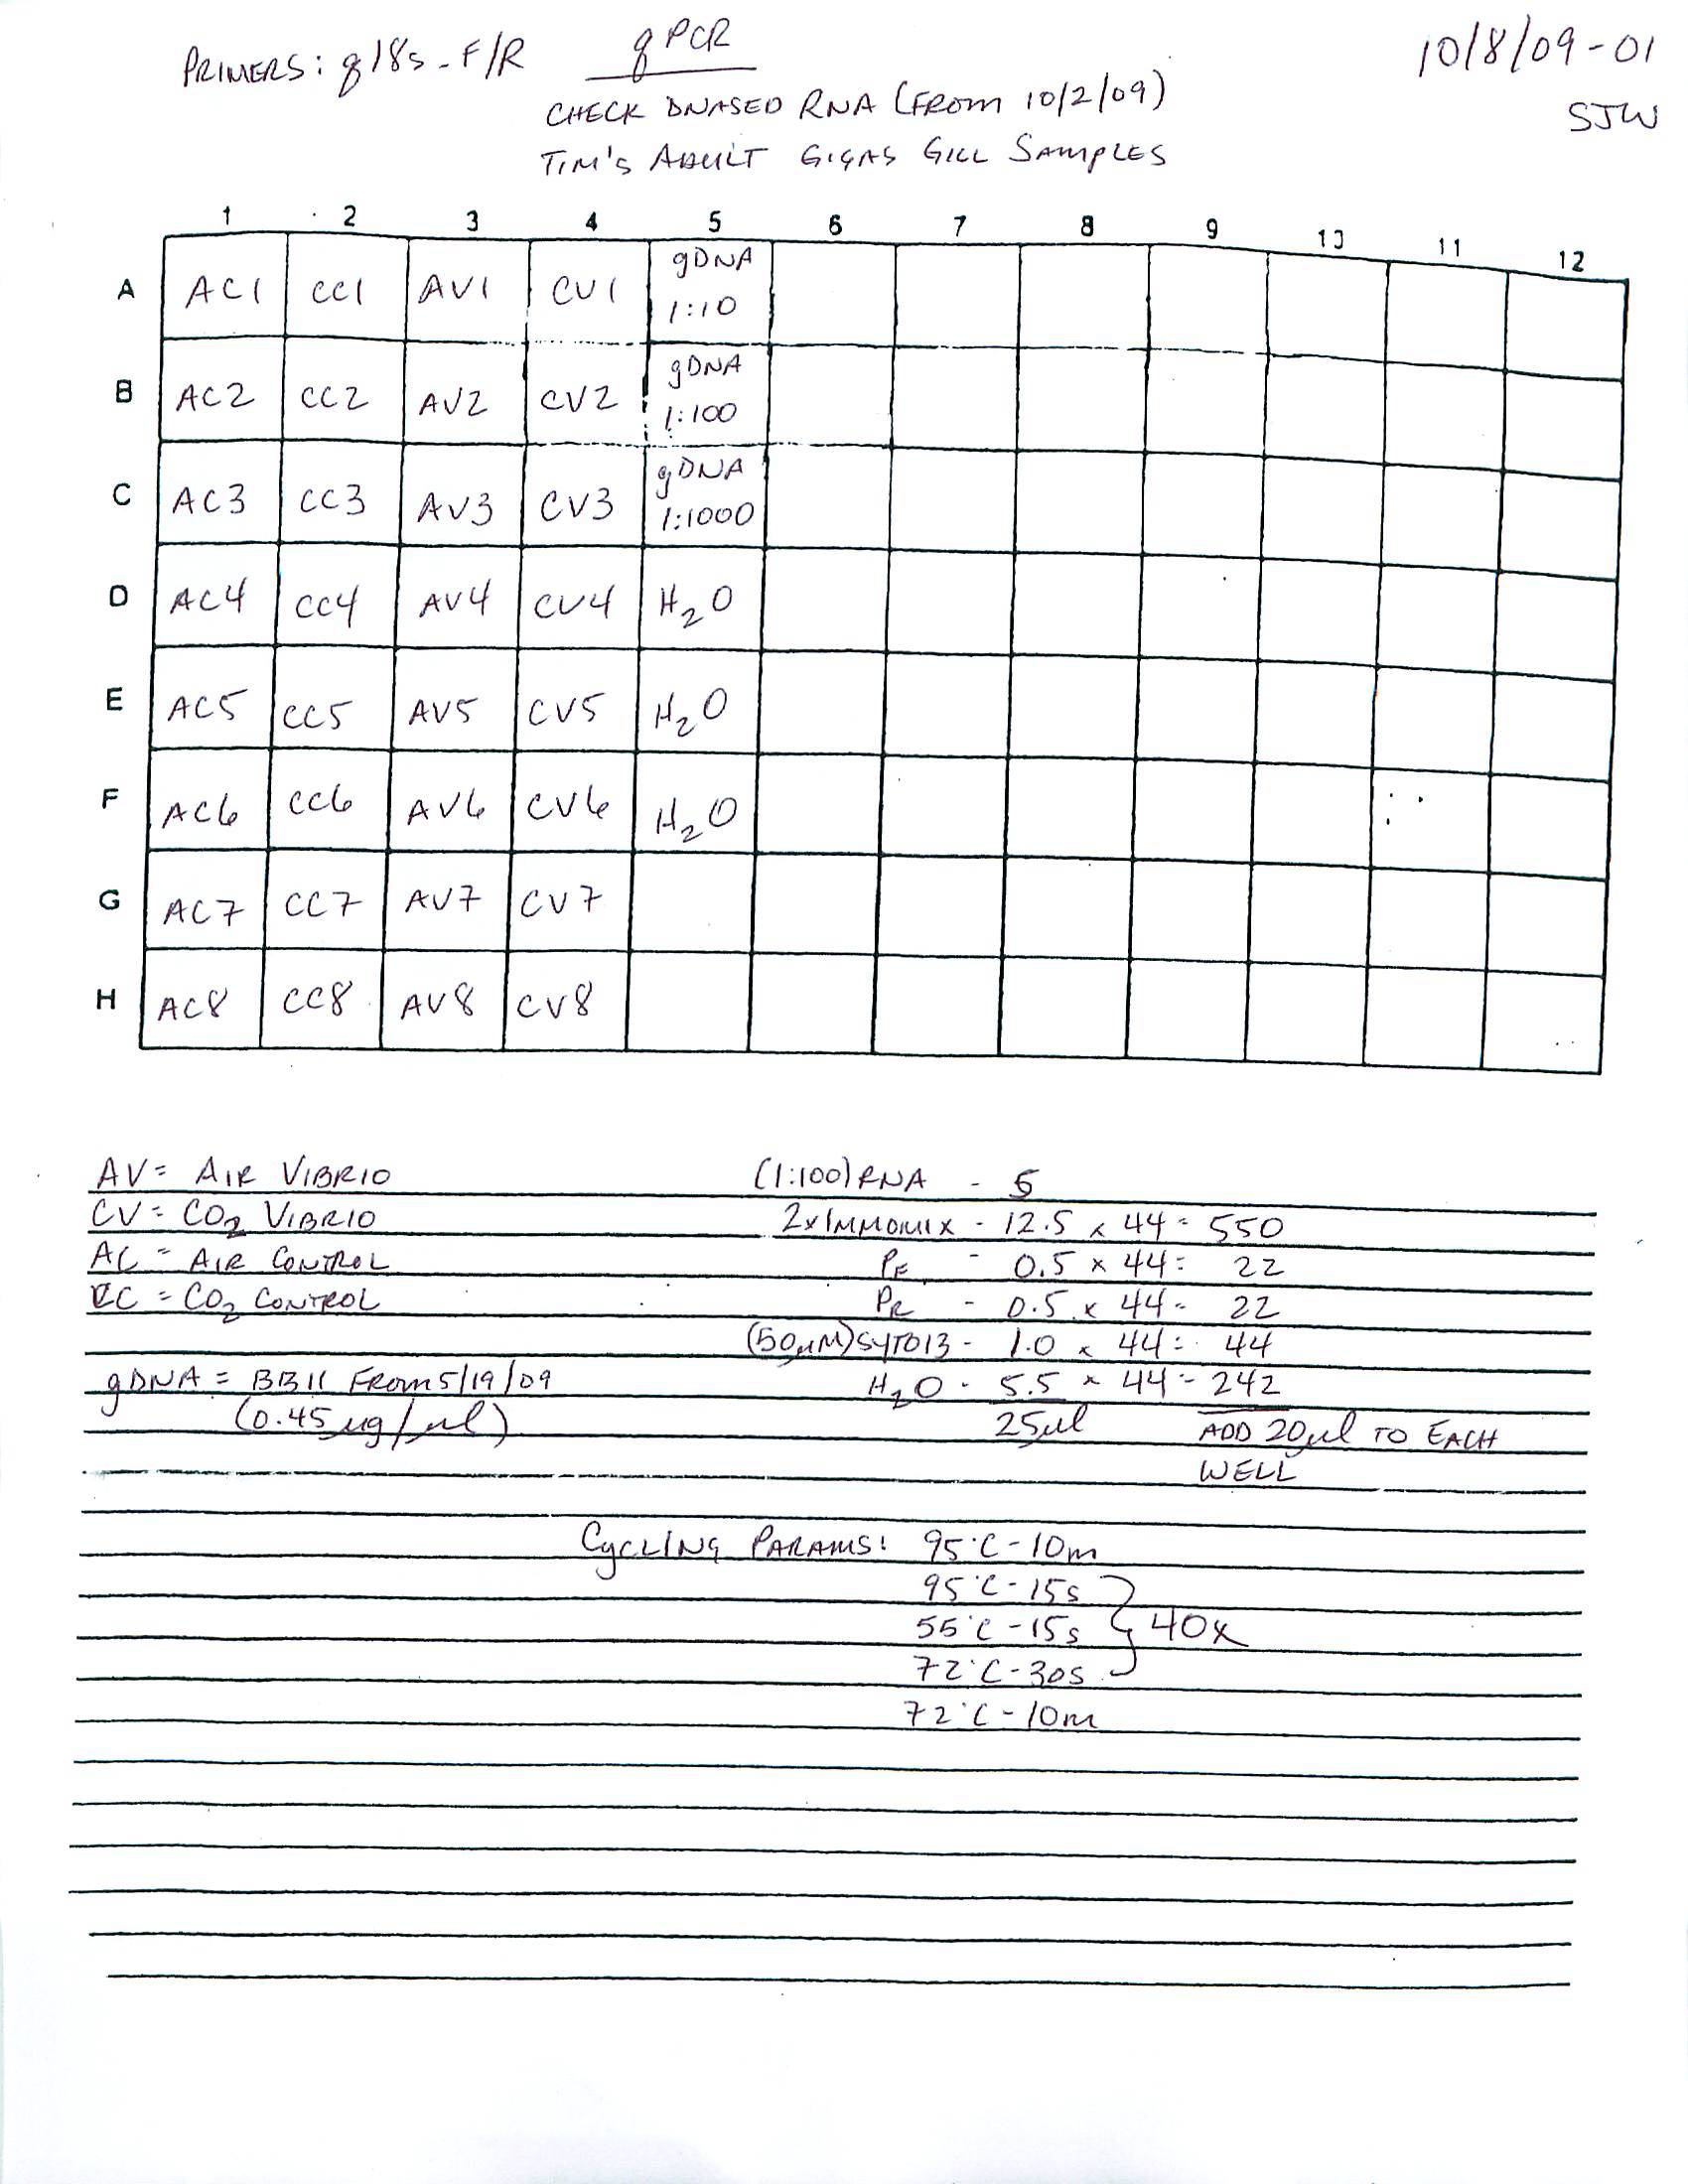 PRIMERS: q18s-F/R qPCR 10/8/09-01
CHECK DNASED RNA (FROM 10/2/09) SJW
TIM'S ADULT GIGAS GILL SAMPLES
1 2 3 4 5 6 7 8 9 10 11 12
A AC1 CC1 AV1 CV1 gDNA 1:10
B AC2 CC2 AV2 CV2 gDNA 1:100
C AC3 CC3 AV3 CV3 gDNA 1:1000
D AC4 CC4 AV4 CV4 H2O
E AC5 CC5 AV5 CV5 H2O
F AC6 CC6 AV6 CV6 H2O
G AC7 CC7 AV7 CV7
H AC8 CC8 AV8 CV8
AV = AIR VIBRIO (1:100) RNA - 5
CV = CO2 VIBRIO 2x IMMOMIX - 12.5 x 44 = 550
AC = AIR CONTROL PF - 0.5 x 44 = 22
CC = CO2 CONTROL PR - 0.5 x 44 = 22
(50µM) SYTO13 - 1.0 x 44 = 44
gDNA = BB11 FROM 5/19/09 H2O - 5.5 x 44 = 242
(0.45µg/µl) 25µl ADD 20µl TO EACH
WELL
CYCLING PARAMS: 95°C - 10m
95°C - 15s
55°C - 15s } 40x
72°C - 30s
72°C - 10m